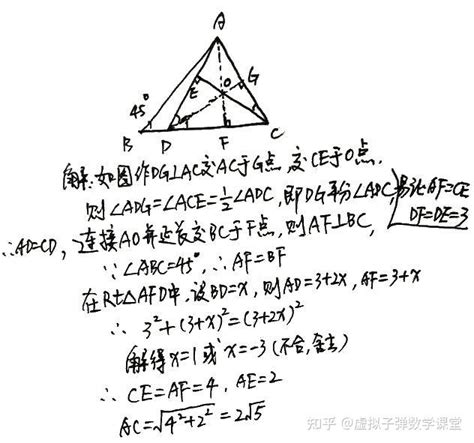 A
E
O
G
45°
B
D
F
C
解:如图作DG⊥AC交AC于G点,交CE于O点.
则∠ADG=∠ACE=½∠ADC,即DG平分∠ADC,
易证AF=CE
DF=DE=3
∴AD=CD,连接AO并延长交BC于F点,则AF⊥BC,
∵∠ABC=45°,∴AF=BF
在Rt△AFD中,设BD=x,则AD=3+2x,AF=3+x
∴ 3²+(3+x)²=(3+2x)²
解得x=1或x=-3(不合,舍去)
∴ CE=AF=4,AE=2
AC=√4²+2²=2√5
知乎 @虚拟子弹数学课堂